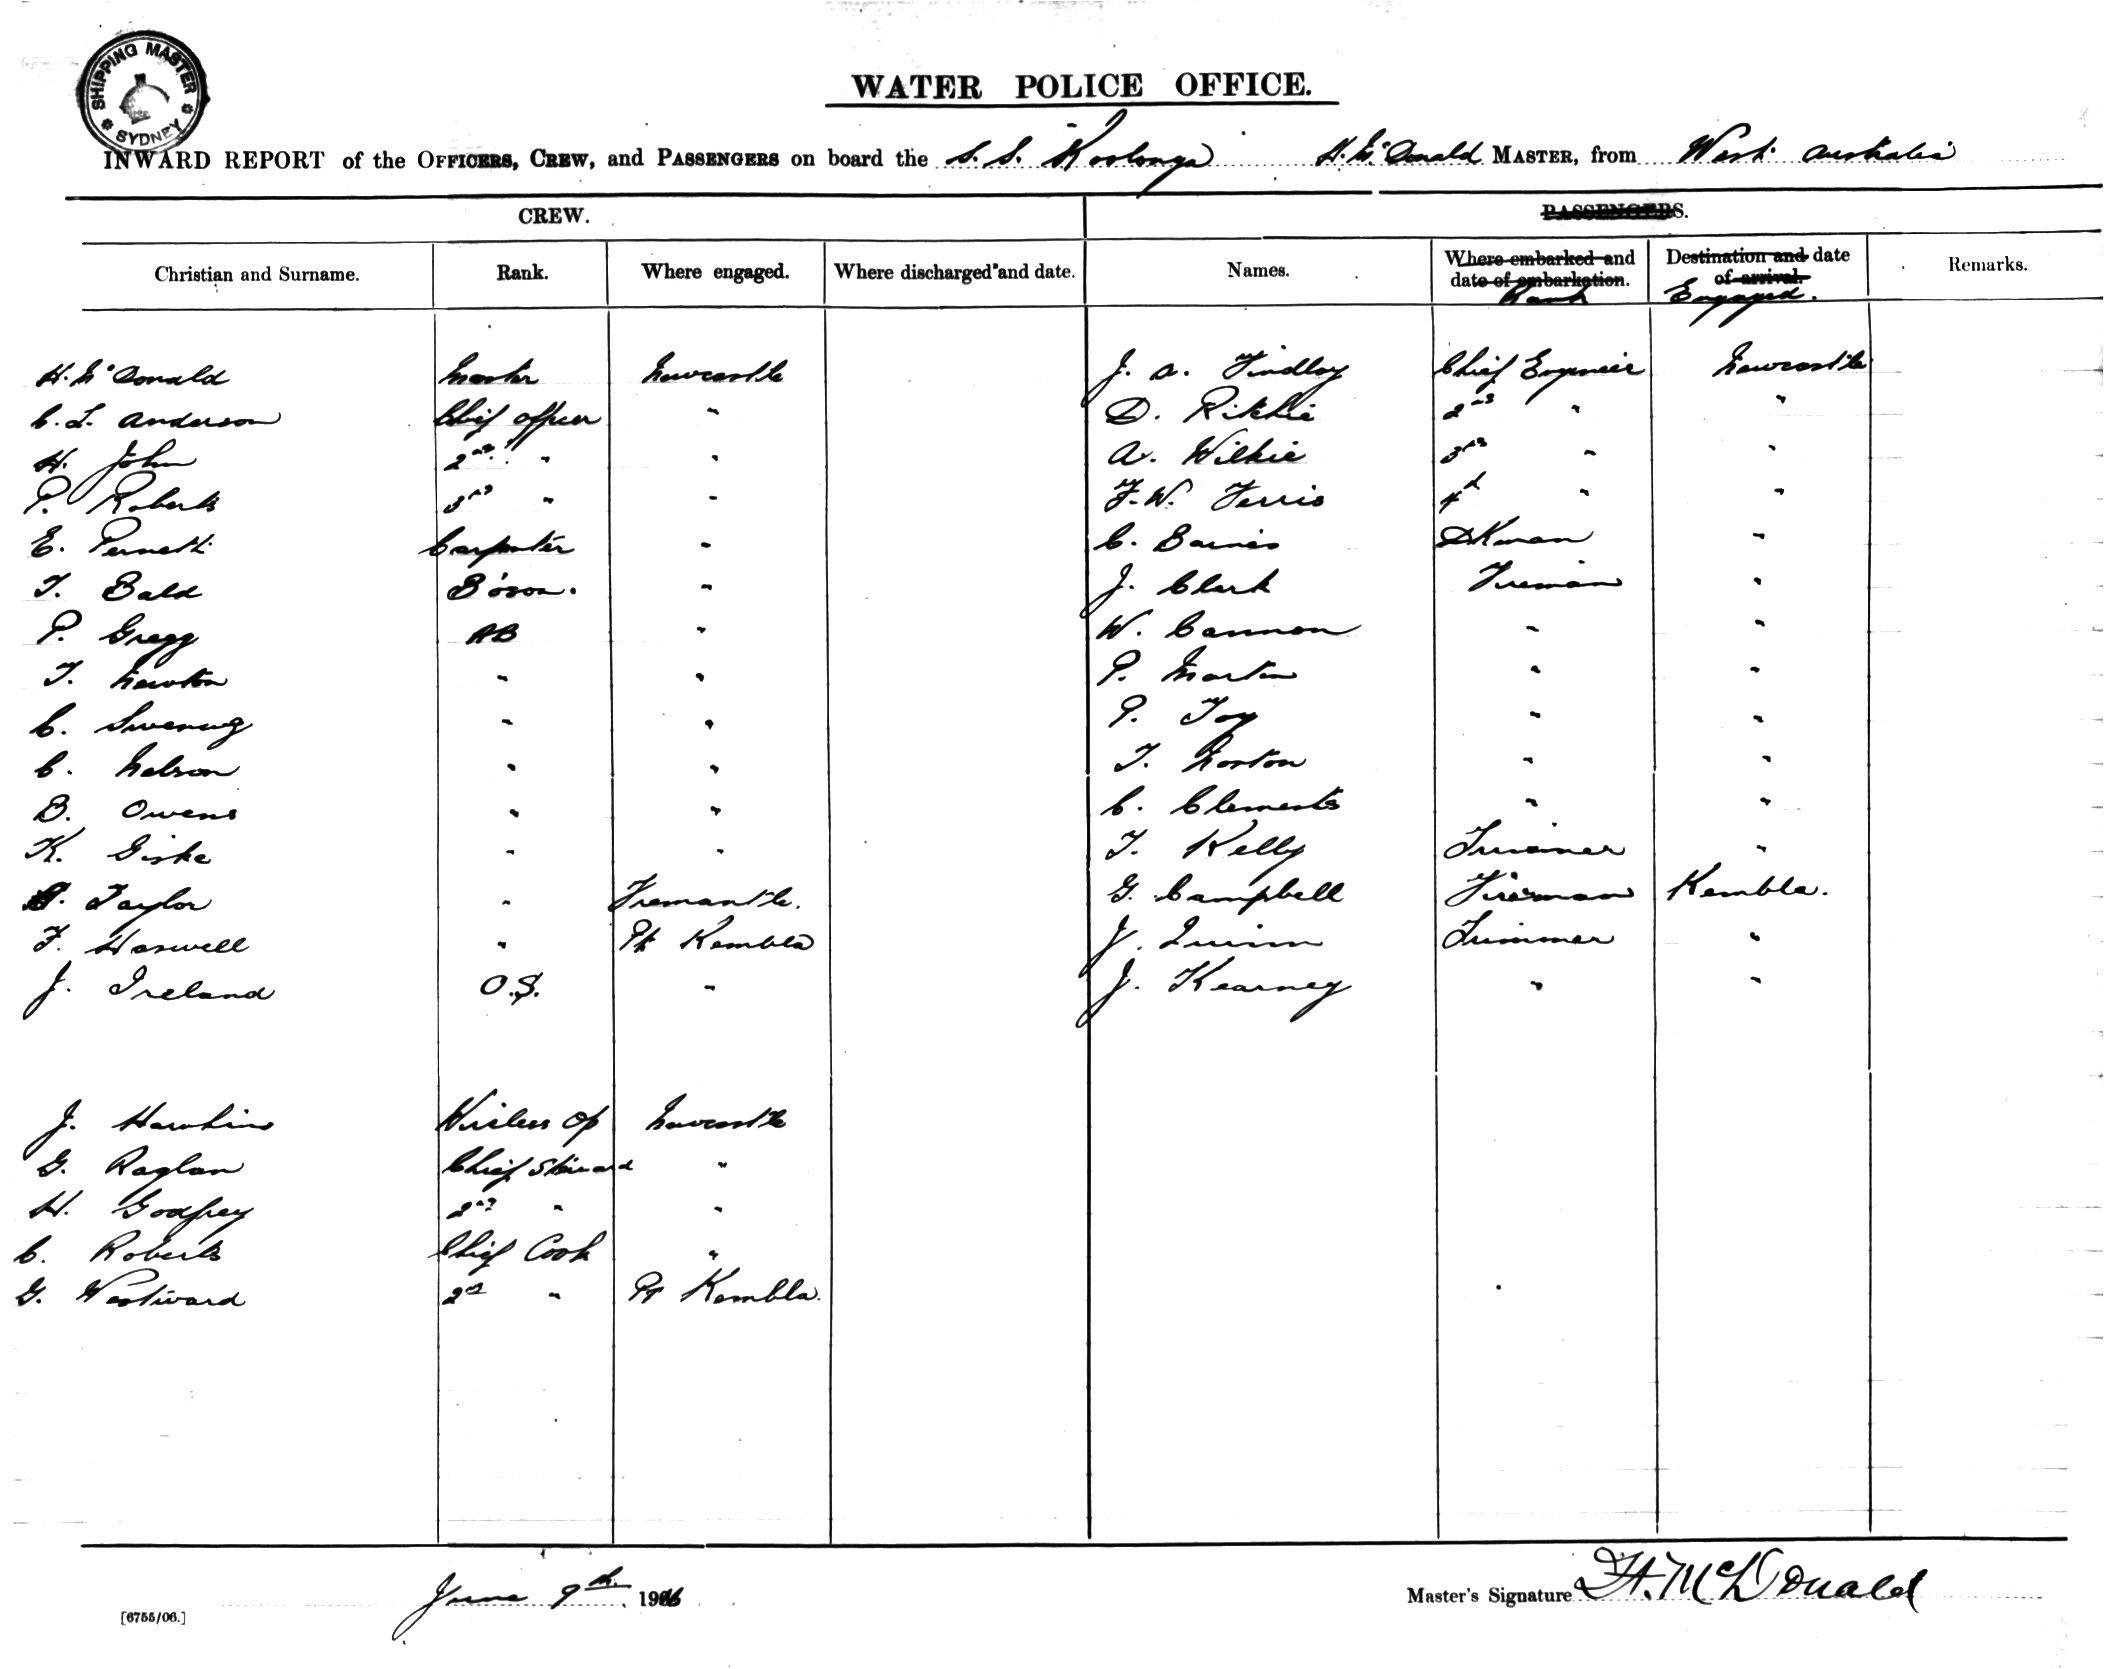 SHIPPING MASTER
SYDNEY
WATER POLICE OFFICE.
INWARD REPORT of the OFFICERS, CREW, and PASSENGERS on board the S. S. Koolonga H. McDonald MASTER, from West Australia
CREW.
PASSENGERS.
Christian and Surname. Rank. Where engaged. Where discharged and date. Names. Where embarked and date of embarkation. Rank Destination and date of arrival. Engaged. Remarks.
H. McDonald Master Newcastle J. A. Findlay Chief Engineer Newcastle
C. L. Anderson Chief Officer " D. Ritchie 2nd " "
H. John 2nd " " A. Wilkie 3rd " "
P. Roberts 3rd " " F. W. Ferris 4th " "
E. Carpenter " C. Barnes Dkman "
T. Bald Bosn. " J. Clark Fireman "
P. Gregg AB " W. Cannon " "
T. Newton " " P. Martin " "
C. " " P. Toy " "
C. Nelson " " T. Norton " "
B. Owens " " C. Clements " "
K. Giske " " T. Kelly Trimmer "
Taylor " Fremantle. G. Campbell Fireman Kembla.
F. Haswell " Pt Kembla J. Quinn Trimmer "
J. Ireland O.S. " J. Kearney " "
J. Hawkins Wireless Op Newcastle
G. Raglan Chief Steward "
H. Godfrey 2nd " "
C. Roberts Chief Cook "
G. Westward 2nd " Pt Kembla.
June 9th. 1916
Master's Signature H. McDonald
[6755/06.]